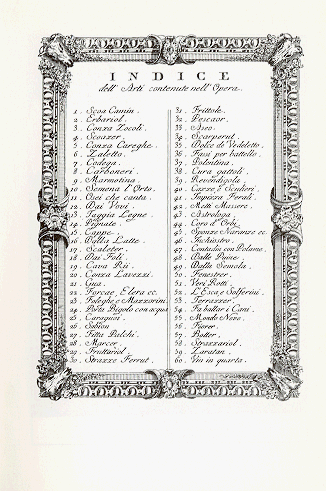 INDICE
dell' Arti contenute nell' Opera.
1. Scoa Camin.
2. Erbariol.
3. Conza Zocoli.
4. Sconzer.
5. Conza Careghe.
6. Zaletto.
7. Codega.
8. Carboneri.
9. Marmotina.
10. Semena l'Orto.
11. Osei che canta.
12. Dai Vovi.
13. Taggia Legne.
14. Pignate.
15. Cappe.
16. Dalla Latte.
17. Scaleter.
18. Dai Foli.
19. Cava Rii.
20. Conza Lavezzi
21. Gua.
22. Forcae, Elera ec.
23. Fologhe, e Mazzorini.
24. Porta Bigolo con acqua
25. Caragoi.
26. Sabion
27. Fitta Palchi.
28. Marcer.
29. Fruttariol.
30. Strazze Ferrut.
31. Frittole.
32. Pescaor.
33. Aseo.
34. Scarperut.
35. Dolce de Vedeletto.
36. Fassi per battello.
37. Polentina.
38. Cura gattoli.
39. Revendigola.
40. Cazze e Sculieri.
41. Impizza Ferali.
42. Mette Massere.
43. Astrologa.
44. Coro d'Orbi.
45. Sponze Naranze ec.
46. Inchiostro.
47. Contadin con Polame.
48. Dalle Puine.
49. Dalla Semola.
50. Fenestrer.
51. Veri Rotti.
52. L'Esca e Solferini.
53. Terrazzer.
54. Fa ballar i Cani.
55. Mondo Novo.
56. Fiorer.
57. Botter.
58. Strazzariol.
59. Zaratan.
60. Vin in quarta.